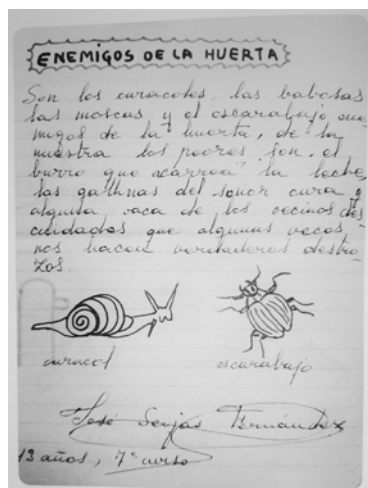 ENEMIGOS DE LA HUERTA
Son los caracoles, las babosas
las moscas y el escarabajo ene-
migos de la huerta, de la
nuestra los peores son, el
burro que acarrea la leche,
las gallinas del señor cura y
alguna vaca de los vecinos des
cuidados que algunas veces
nos hacen verdaderos destro-
zos.
caracol
escarabajo
José Seijas Fernández
13 años, 7º curso